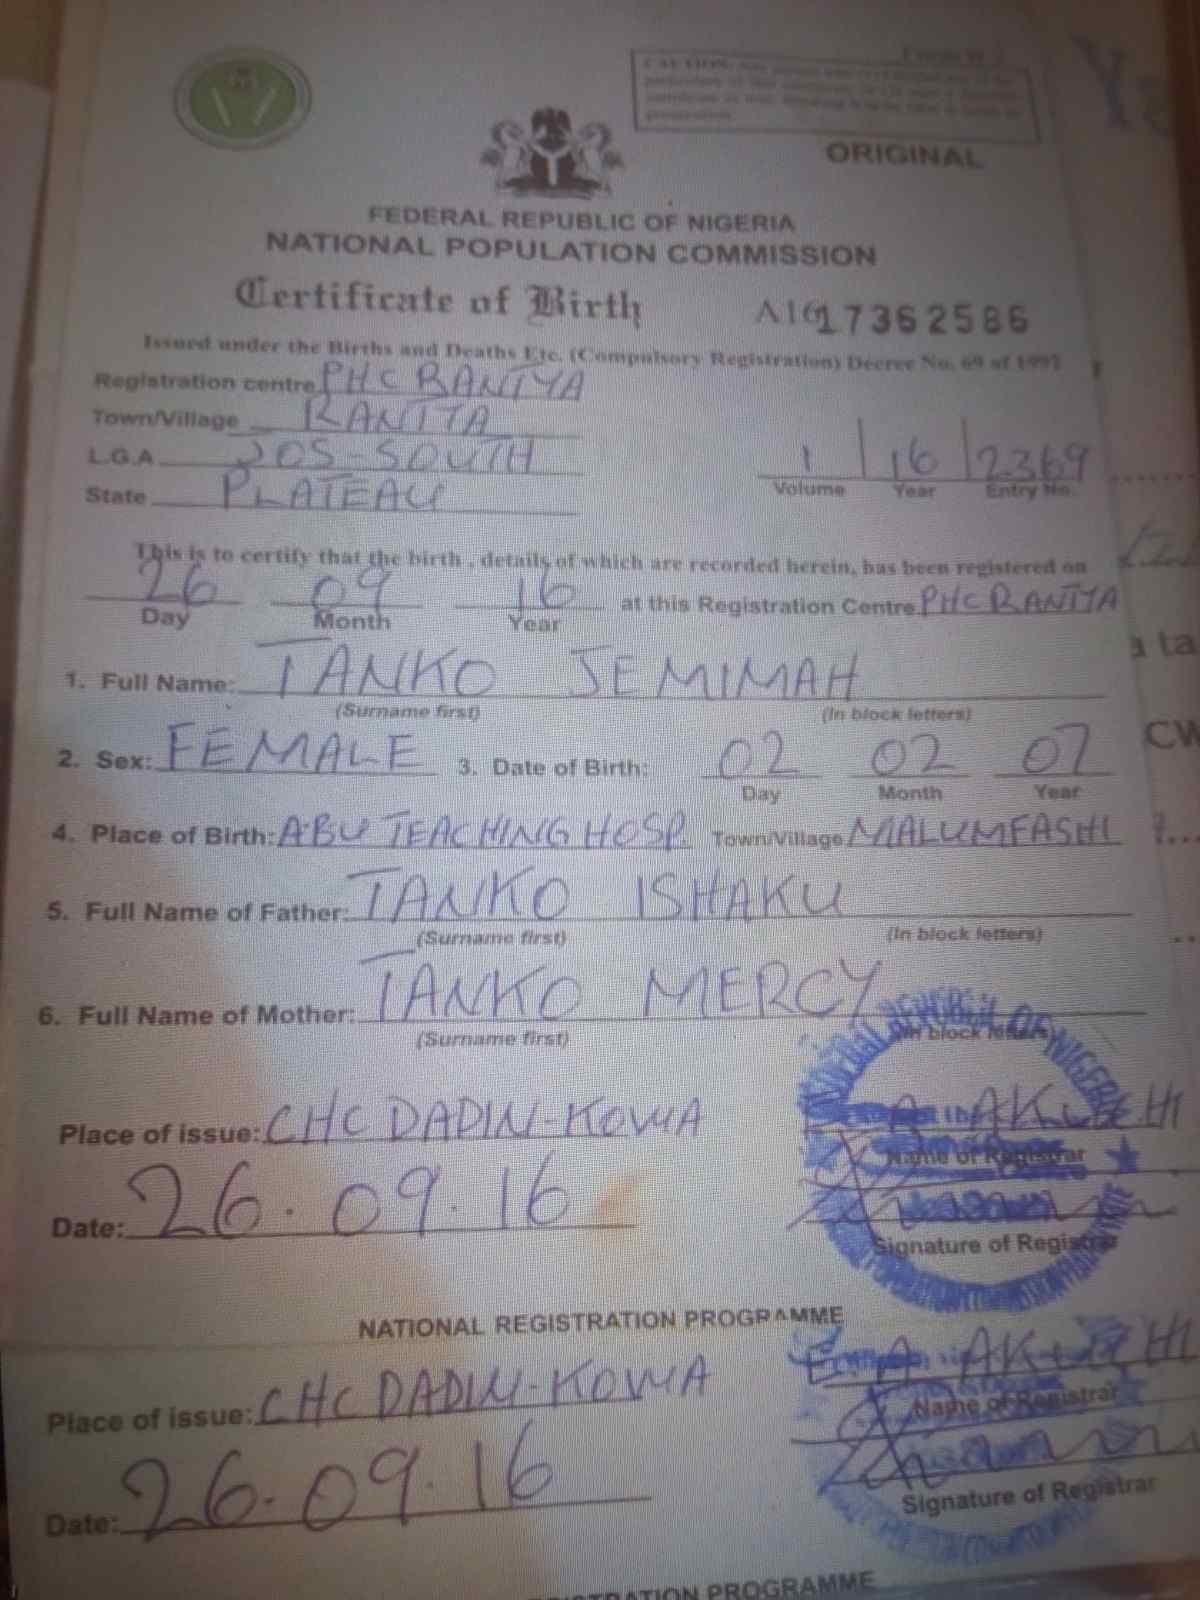 ORIGINAL
FEDERAL REPUBLIC OF NIGERIA
NATIONAL POPULATION COMMISSION
Certificate of Birth A1617362586
Issued under the Births and Deaths Etc. (Compulsory Registration) Decree No. 69 of 1992
Registration centre PHC RANTYA
Town/Village RANTYA
L.G.A JOS-SOUTH
State PLATEAU
1 16 2369
Volume Year Entry No.
This is to certify that the birth, details of which are recorded herein, has been registered on
26 09 16 at this Registration Centre PHC RANTYA
Day Month Year
1. Full Name: TANKO JEMIMAH
(Surname first) (In block letters)
2. Sex: FEMALE 3. Date of Birth: 02 02 07
Day Month Year
4. Place of Birth: ABU TEACHING HOSP. Town/Village MALUMFASHI
5. Full Name of Father: TANKO ISHAKU
(Surname first) (In block letters)
6. Full Name of Mother: TANKO MERCY
(Surname first) (In block letters)
Place of issue: CHC DADIN-KOWA
Name of Registrar
Date: 26.09.16
Signature of Registrar
NATIONAL REGISTRATION PROGRAMME
Place of issue: CHC DADIN-KOWA
Name of Registrar
Date: 26.09.16
Signature of Registrar
PROGRAMME